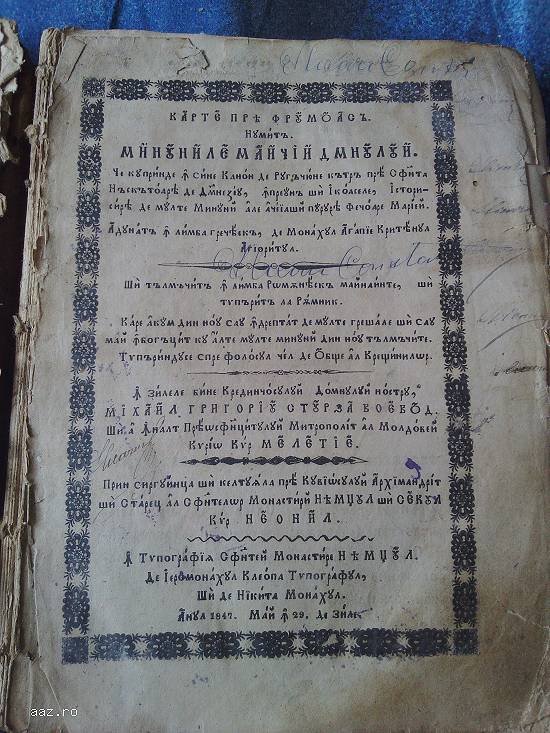 КАРТЕ ПРѣ ФРꙊМОАСЪ.
Нꙋмитъ.
МИНꙊНИЛЕ МАЙЧІЙ ДМНꙊЛꙊЙ.
Че кꙋпринде ꙟ сине Канон де Рꙋгъчюне кътръ прѣ Сфѫнта
Нъскътоаре де Дмнезеꙋ, ꙟпреꙋнъ ши Ікоаселе, Істори-
сире де мꙋлте Минꙋнй але Ачеіаши пꙋрꙋре Фечоаре Маріей.
Адꙋнатъ ꙟ лимба гречѣскъ, де Монахꙋл Агапіе Критѣнꙋл
Агіоритꙋл.
Ши тълмъчитъ ꙟ лимба Рꙋмѫнѣскъ майнаинте, ши
типъритъ ла Рѫмник.
Каре акꙋм дин ноꙋ саꙋ ꙟдрептат де мꙋлте грешале ши саꙋ
май ꙟбогъцит кꙋ алте мꙋлте минꙋнй дин ноꙋ тълмъчите.
Тꙋпъриндꙋсе спре фолосꙋл чел де Обще ал Крещинилѡр.
ꙟ зилеле бине Крединчосꙋлꙋй Домнꙋлꙋй нострꙋ,
МІХАИЛ ГРИГОРІꙊ СТꙊРЗА ВОЕВОД.
Ши а ꙟналт Прѣѡсфинцитꙋлꙋй Митрополіт ал Молдовей
Кѵріѡ Кѵр МЕЛЕТІЕ.
Прин сиргꙋинца ши келтꙋала прѣ Кꙋвіѡсꙋлꙋй Архімандріт
ши Старец ал Сфинтелѡр Монастирй НѣМЦꙊЛ ши СЕКꙊЛ
Кѵр НЕОНИЛ.
ꙟ Типографія Сфинтей Монастире НѣМЦꙊЛ.
Де Іеромонахꙋл Клеопа Типографꙋл,
Ши де Нікита Монахꙋл.
Анꙋл 1847. Май ꙟ 29. де Зиле
aaz.ro